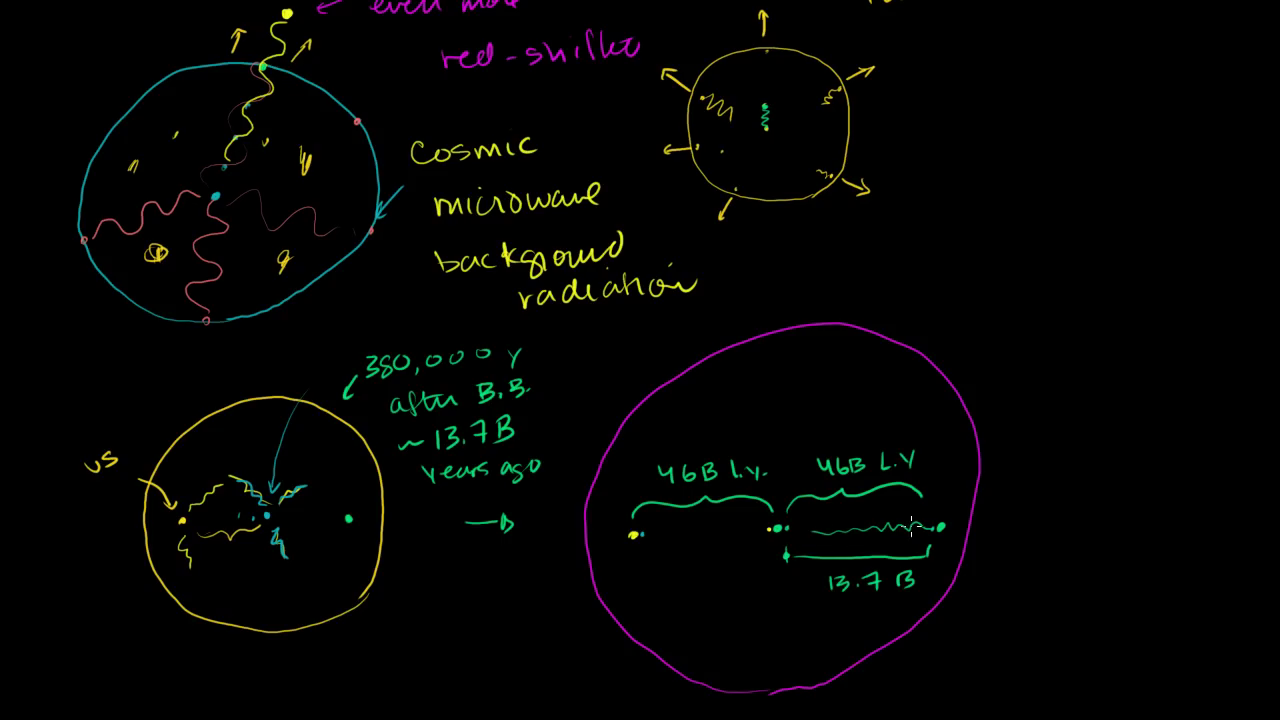 even more
red-shifted
cosmic
microwave
background
radiation
380,000 y
after B.B.
~ 13.7B
years ago
us
46B l.y.
46B L.Y
13.7 B